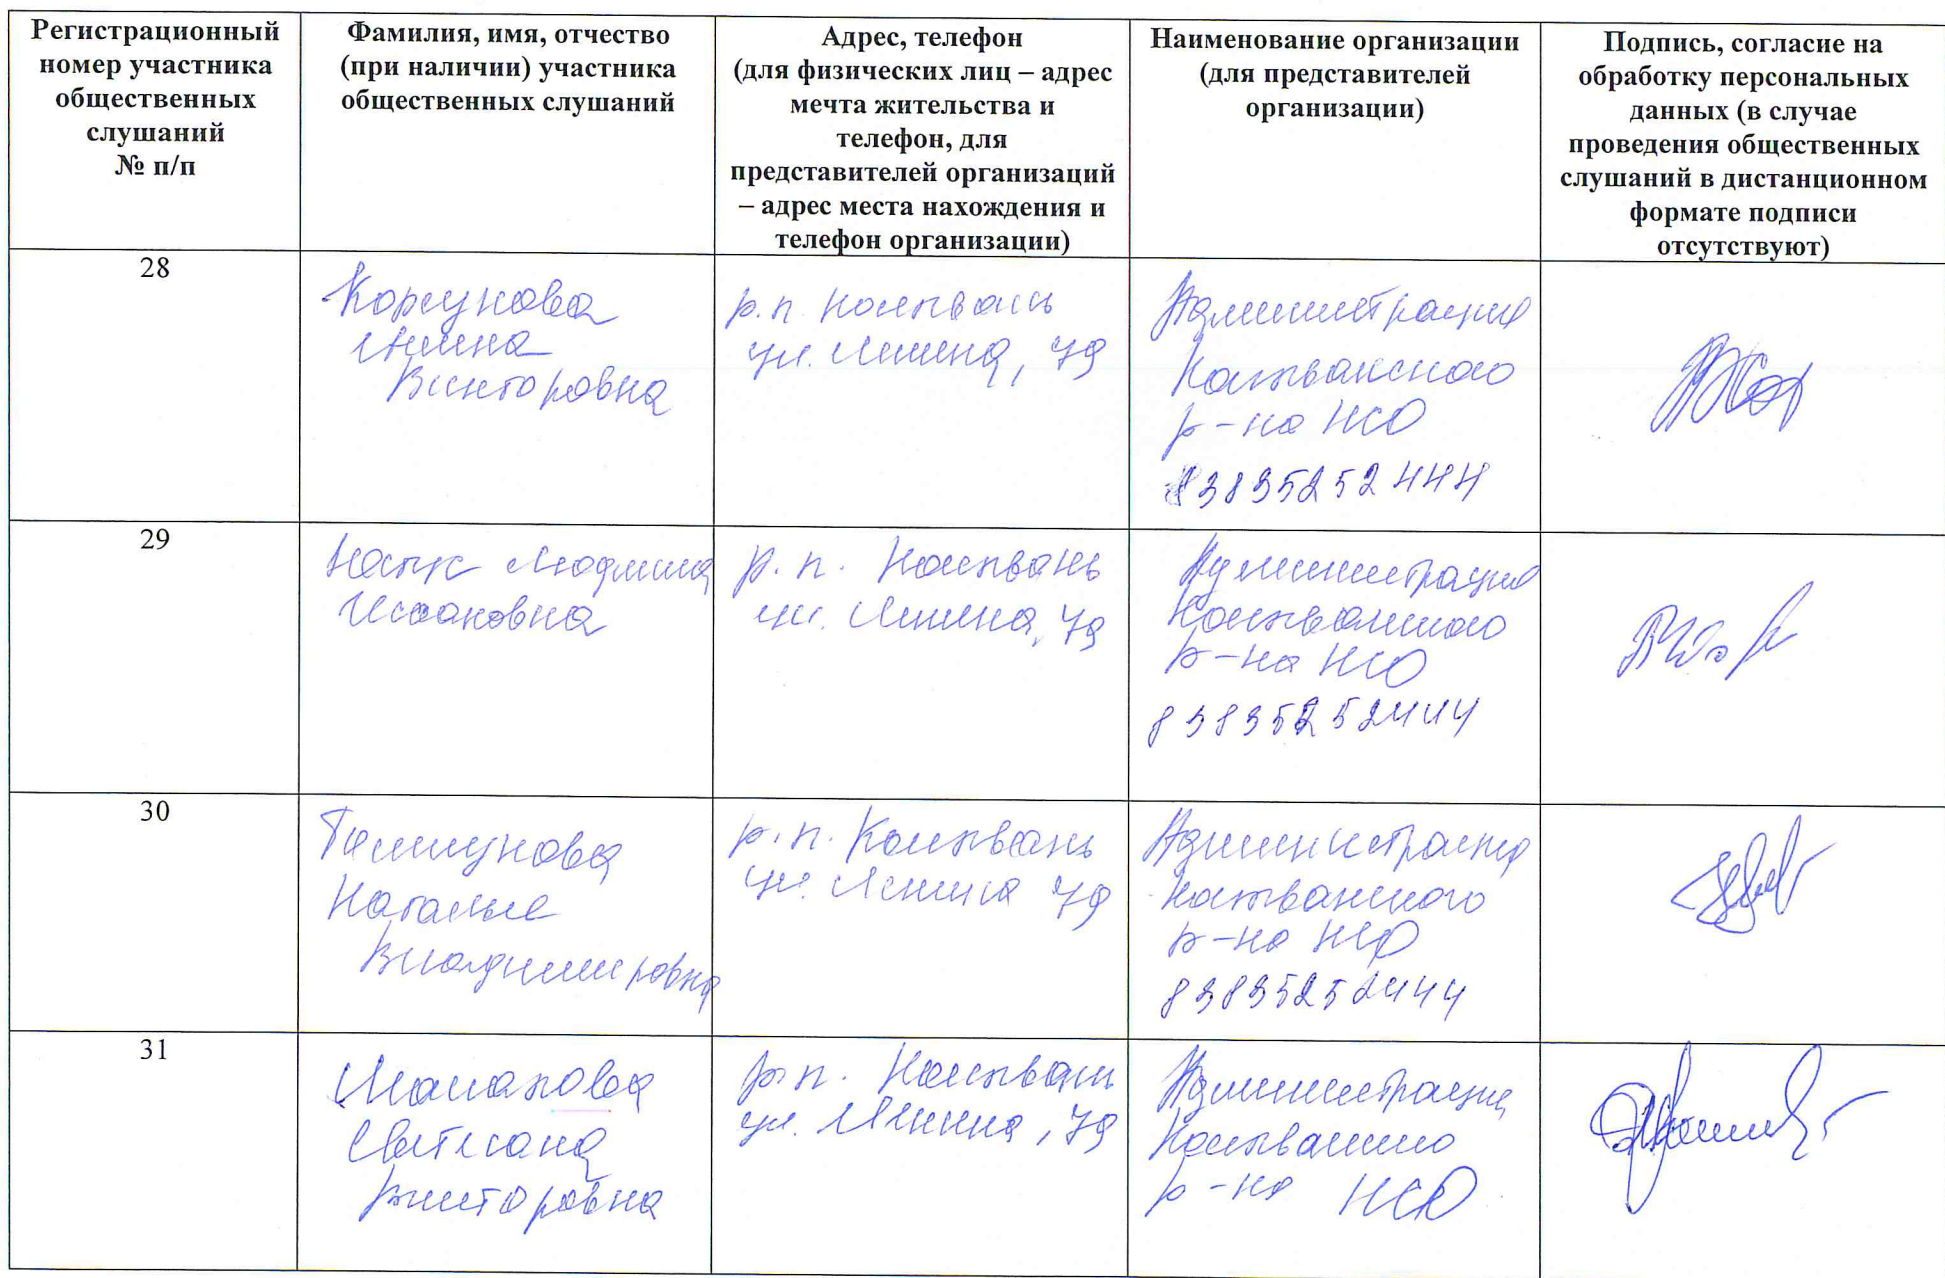 Регистрационный
номер участника
общественных
слушаний
№ п/п
Фамилия, имя, отчество
(при наличии) участника
общественных слушаний
Адрес, телефон
(для физических лиц – адрес
мечта жительства и
телефон, для
представителей организаций
– адрес места нахождения и
телефон организации)
Наименование организации
(для представителей
организации)
Подпись, согласие на
обработку персональных
данных (в случае
проведения общественных
слушаний в дистанционном
формате подписи
отсутствуют)
28
Коршунова
Викторовна
р.п. Колывань
ул. Ленина, 79
Администрация
Колыванского
р-на НСО
83835252444
29
Людмила
Исааковна
р.п. Колывань
ул. Ленина, 79
Администрация
Колыванского
р-на НСО
83835252444
30
Наталья
Владимировна
р.п. Колывань
ул. Ленина 79
Администрация
Колыванского
р-на НСО
83835252444
31
Светлана
Викторовна
р.п. Колывань
ул. Ленина, 79
Администрация
р-на НСО